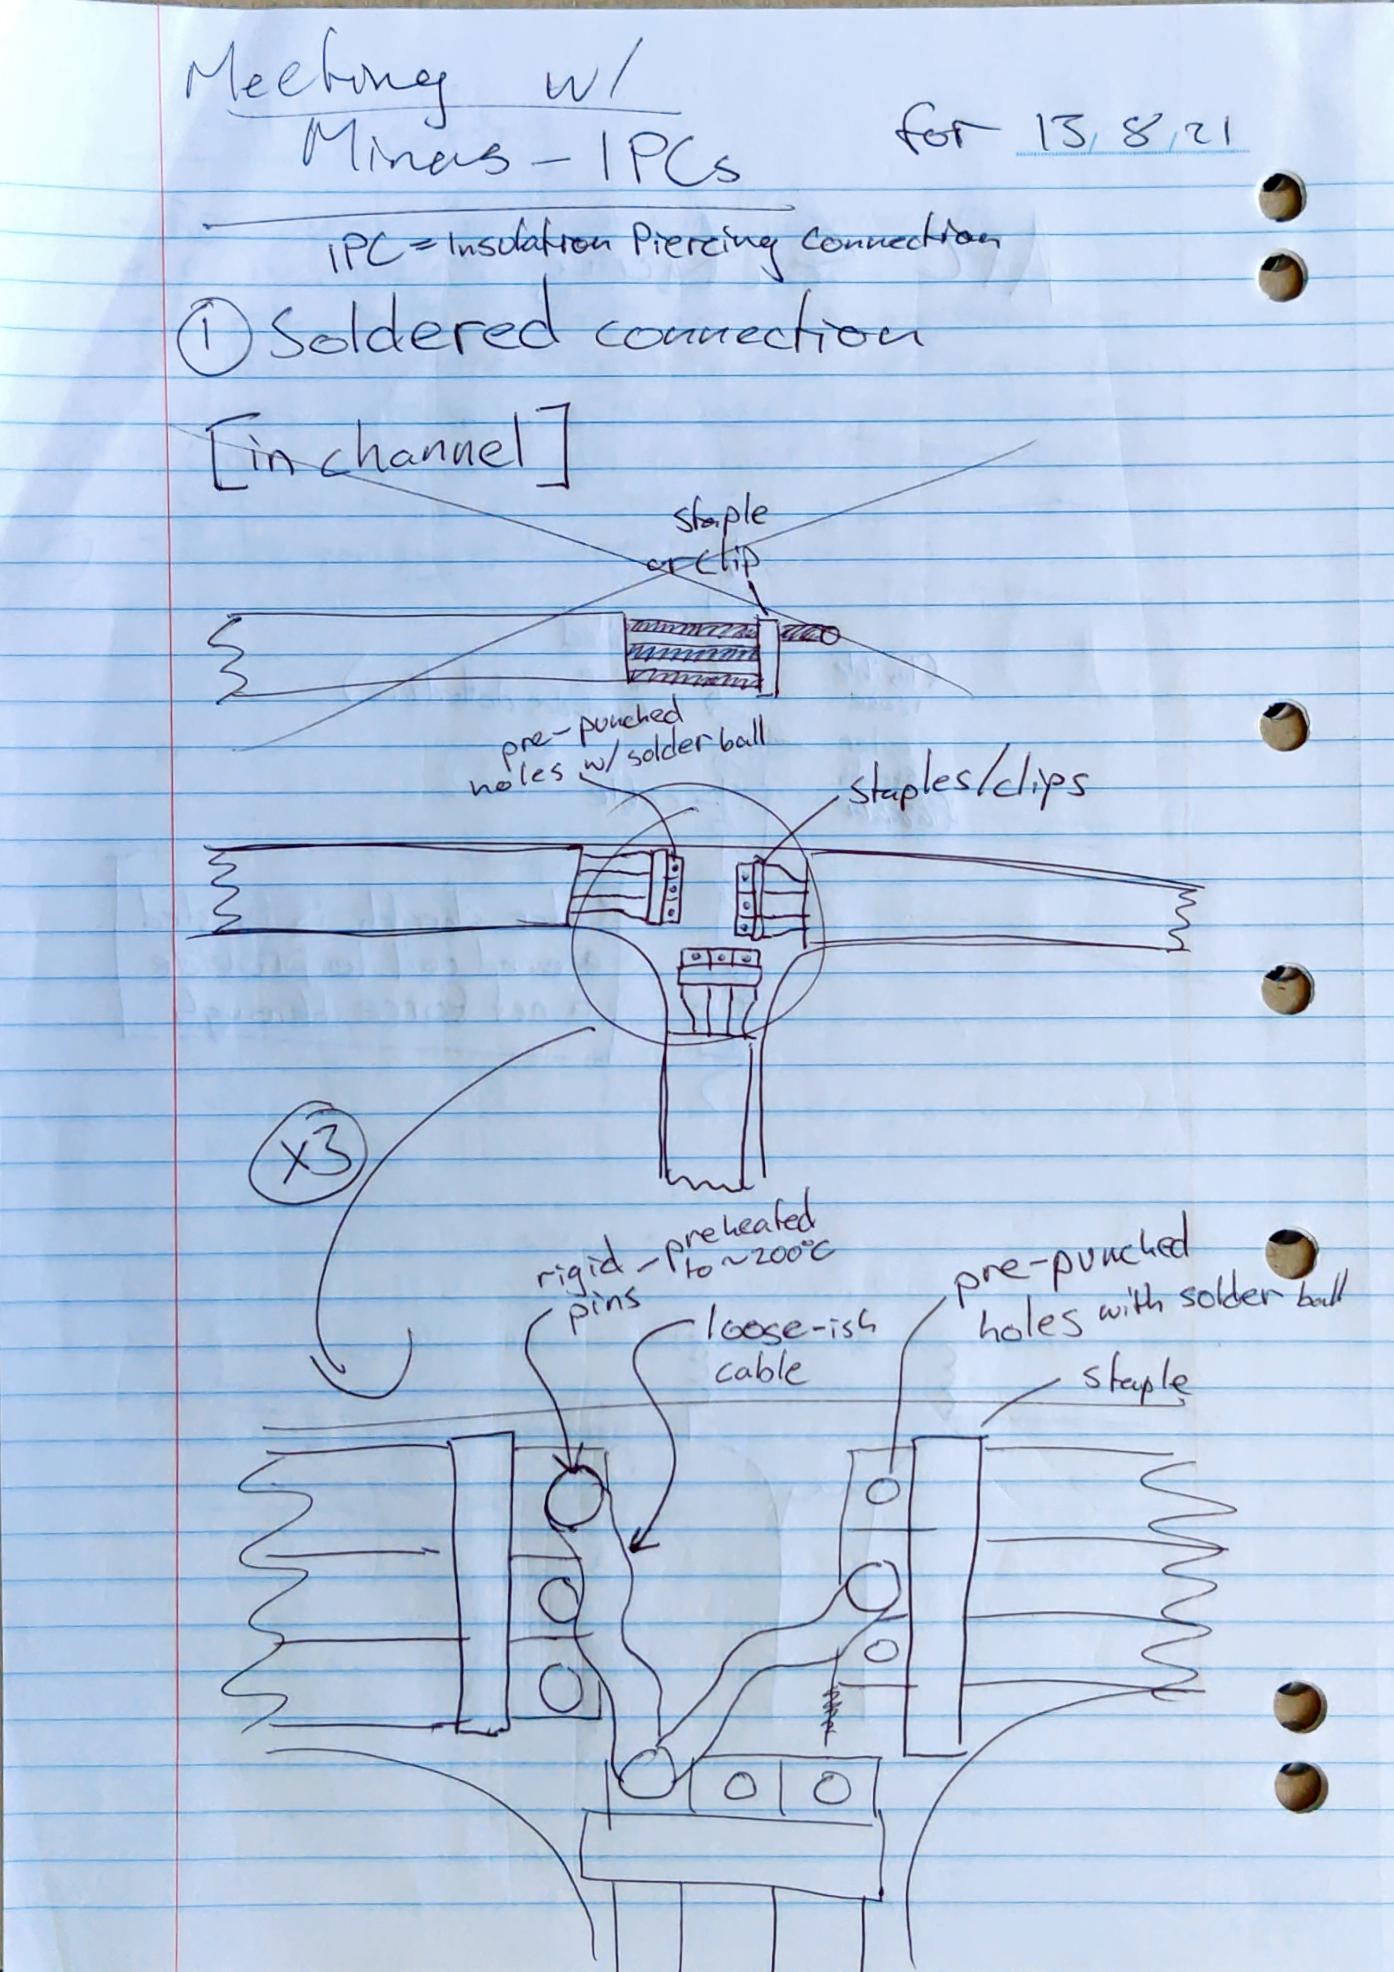 Meeting w/
Minas - IPCs
for 13/8/21
IPC = Insulation Piercing Connection
① Soldered connection
[in channel]
staple
or clip
pre-punched
holes w/ solder ball
staples/clips
x3
rigid pins - preheated
to ~200°C
loose-ish
cable
pre-punched
holes with solder ball
staple